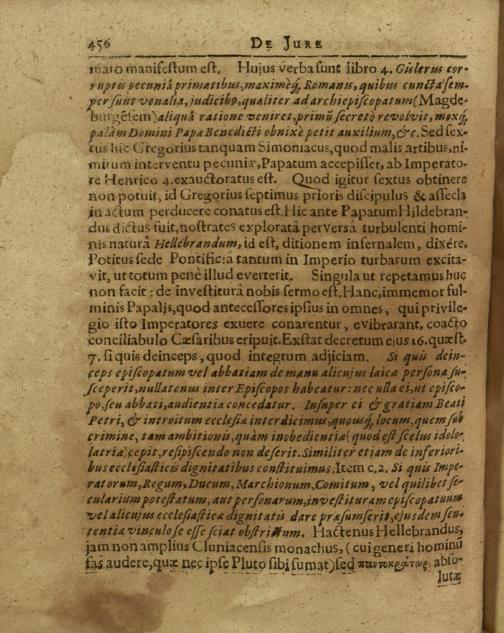 456 DE JURE
maro manifestum est. Hujus verba sunt libro 4. Gislerus cor-
ruptis pecuniâ primatibus, maximèq́; Romanis, quibus cuncta sem-
per sunt venalia, judicibꝰ, qualiter ad archiepiscopatum (Magde-
burgẽsem) aliquâ ratione veniret, primũ secretò revolvit, moxq́;
palàm Domini Papæ Benedicti obnixè petit auxilium, &c. Sed sex-
tus hic Gregorius tanquam Simoniacus, quod malis artibus, ni-
mirum interventu pecuniæ, Papatum accepisset, ab Imperato-
re Henrico 4. exauctoratus est. Quod igitur sextus obtinere
non potuit, id Gregorius septimus prioris discipulus & assecla
in actum perducere conatus est. Hic ante Papatum Hildebran-
dus dictus fuit, nostrates exploratâ perversâ turbulenti homi-
nis naturâ Hellebrandum, id est, ditionem infernalem, dixêre.
Potitus sede Pontificiâ tantum in Imperio turbarum excita-
vit, ut totum penè illud everterit. Singula ut repetamus huc
non facit: de investiturâ nobis sermo est. Hanc, immemor ful-
minis Papalis, quod antecessores ipsius in omnes, qui privile-
gio isto Imperatores exuere conarentur, evibrarant, coacto
conciliabulo Cæsaribus eripuit. Exstat decretum ejus 16. quæst.
7. si quis deinceps, quod integrum adjiciam. Si quis dein-
ceps episcopatum vel abbatiam de manu alicujus laicæ personæ su-
sceperit, nullatenus inter Episcopos habeatur: nec ulla ei, ut episco-
po, seu abbati, audientia concedatur. Insuper ei & gratiam Beati
Petri, & introitum ecclesiæ interdicimus, quousq́; locum, quem sub
crimine, tam ambitionis, quàm inobedientiæ (quod est scelus idolo-
latriæ) cepit, resipiscendo non deserit. Similiter etiam de inferiori-
bus ecclesiasticis dignitatibus constituimus. Item c. 2. Si quis Impe-
ratorum, Regum, Ducum, Marchionum, Comitum, vel quilibet se-
cularium potestatum, aut personarum, investituram episcopatuum
vel alicujus ecclesiasticæ dignitatis dare præsumserit, ejusdem sen-
tentiæ vinculo se esse sciat obstrictum. Hactenus Hellebrandus,
jam non amplius Cluniacensis monachus, (cui generi hominũ
fas audere, quæ nec ipse Pluto sibi sumat) sed παντοκράτωρ: abso-
lutæ